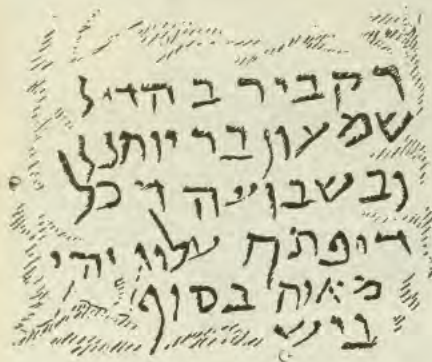 דקביר ב הדין
שמעון בר יוחנן
ובשבועה די כל
דיפתח עלוי יהי
מאית בסוף
ביש